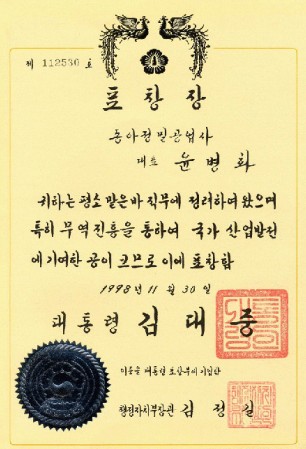 제 112530 호
표창장
동아정밀공업사
대표 윤병화
귀하는 평소 맡은바 직무에 정려하여 왔으며
특히 무역진흥을 통하여 국가 산업발전
에 기여한 공이 크므로 이에 표창함
1998년 11월 30일
대통령 김대중
이증을 대통령 표창부에 기입함
행정자치부장관 김정길